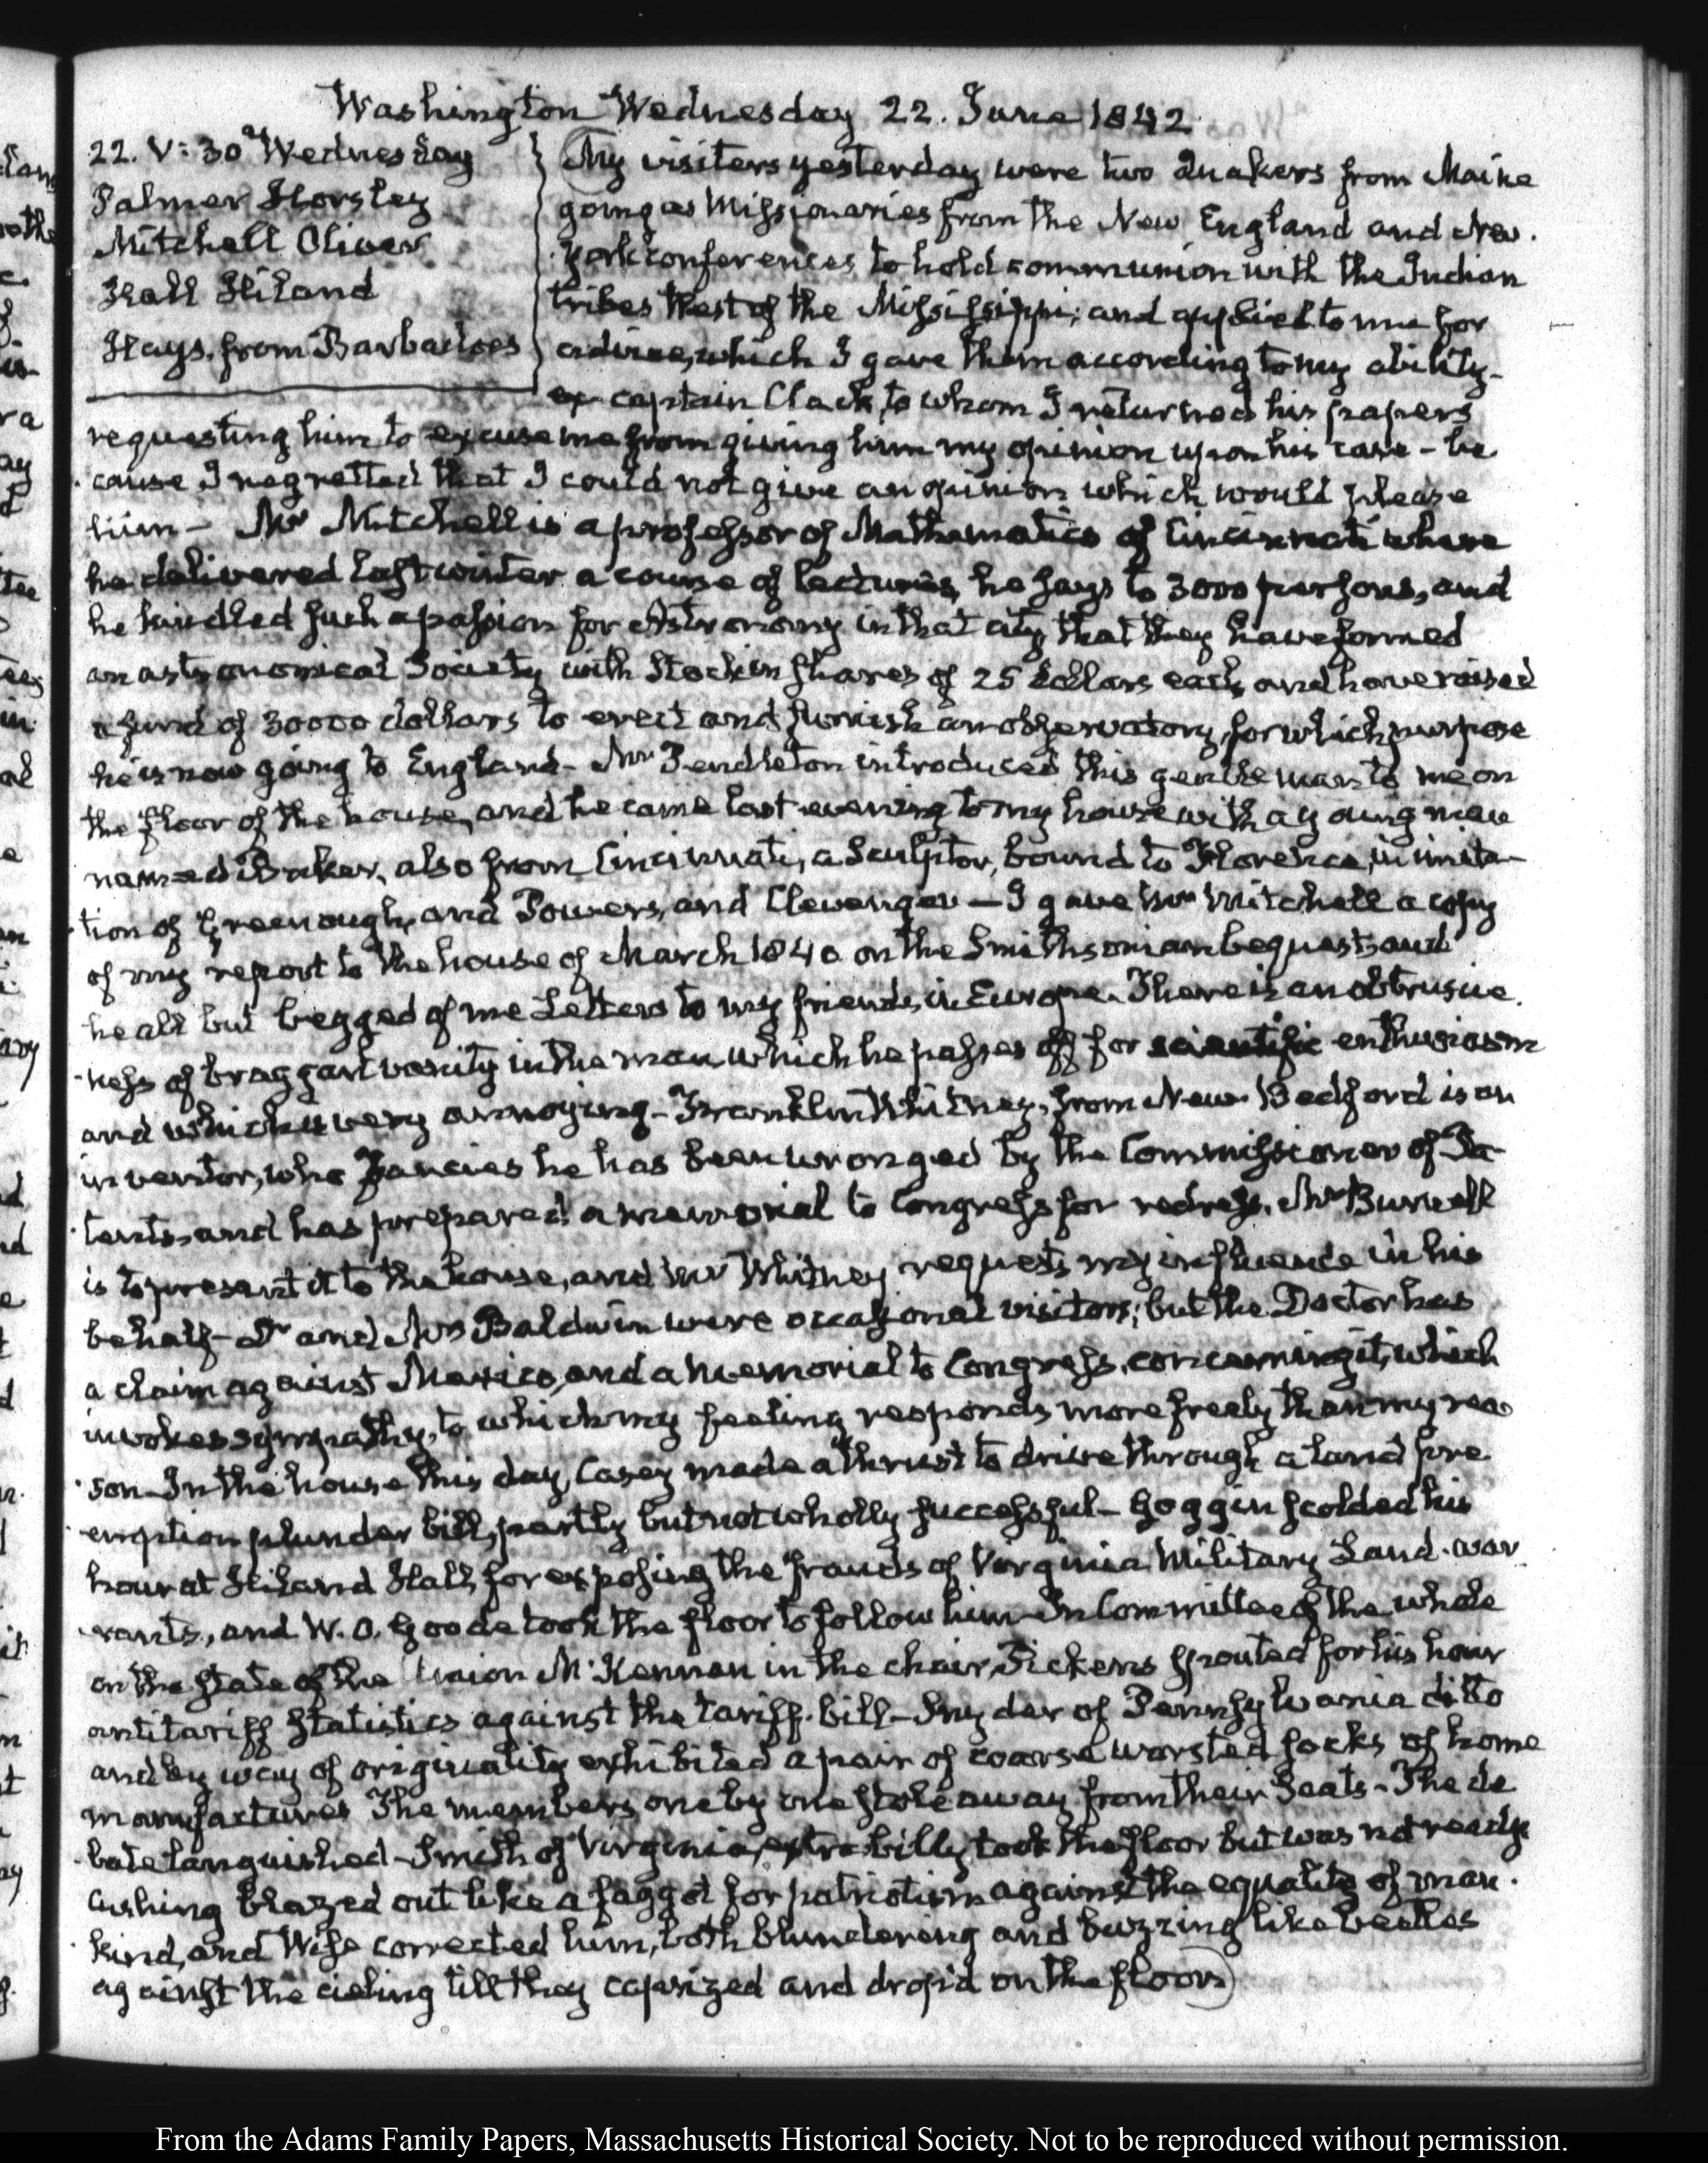 Washington Wednesday 22. June 1842
22. V: 30 Wednesday
Palmer Horsley
Mitchell Oliver
Hall Hiland
Hays. from Barbadoes
My visiters yesterday were two Quakers from Maine
going as Missionaries from the New England and New-
York conferences, to hold communion with the Indian
tribes West of the Mississippi; and applied to me for
advice, which I gave them according to my ability-
ex captain Clack, to whom I returned his papers
requesting him to excuse me from giving him my opinion upon his case - be
cause I regretted that I could not give an opinion which would please
him - Mr Mitchell is a professor of Mathematics of Cincinnati where
he delivered last winter a course of lectures, he says to 3000 persons, and
he kindled such a passion for Astronomy in that city, that they have formed
an astronomical Society with Stock in shares of 25 dollars each, and have raised
a fund of 30000 dollars to erect and furnish an observatory, for which purpose
he is now going to England- Mr Pendleton introduced this gentleman to me on
the floor of the house, and he came last evening to my house with a young man
named Baker, also from Cincinnati, a Sculptor, bound to Florence, in imita-
tion of Greenough, and Powers, and Clevenger — I gave Mr Mitchell a copy
of my report to the house of March 1840 on the Smithsonian bequest, and
he all but begged of me Letters to my friends in Europe. There is an obtrusive-
ness of braggart vanity in the man, which he passes off for scientific enthusiasm
and which is very annoying- Franklin Whitney, from New-Bedford is an
inventor, who fancies he has been wronged by the Commissioner of Pa-
tents, and has prepared a memorial to Congress for redress. Mr Burnell
is to present it to the house, and Mr Whitney requests my influence in his
behalf- Dr and Mrs Baldwin were occasional visitors; but the Doctor has
a claim against Mexico, and a memorial to Congress, concerning it, which
invokes sympathy, to which my feeling responds more freely than my rea
son- In the house this day, Casey made a thrust to drive through a land pre
emption plunder bill, partly but not wholly successful- Goggin scolded his
hour at Hiland Hall, for exposing the frauds of Virginia Military Land-war
rants, and W. O. Goode took the floor to follow him- In Committee of the whole
on the state of the Union McKennan in the chair, Pickens spouted for his hour
antitariff Statistics against the tariff-bill- Snyder of Pennsylvania ditto
and by way of originality exhibited a pair of coarse worsted socks of home
manufactures The members one by one stole away from their Seats- The de
bate languished- Smith of Virginia, extra billy, took the floor but was not ready.
Cushing blazed out like a faggot for patriotism against the equality of man-
kind, and Wise corrected him, both blundering and buzzing like beetles
against the cieling till they capsized and drop'd on the floor
From the Adams Family Papers, Massachusetts Historical Society. Not to be reproduced without permission.